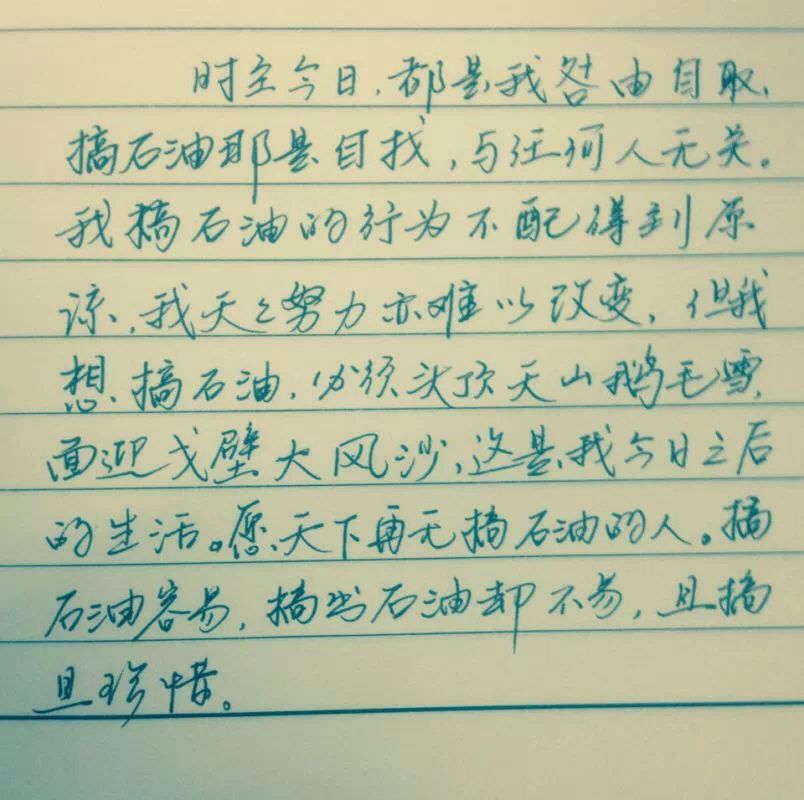 时至今日,都是我咎由自取,
搞石油那是自找,与任何人无关。
我搞石油的行为不配得到原
谅,我天天努力亦难以改变,但我
想,搞石油,必须头顶天山鹅毛雪,
面迎戈壁大风沙,这是我今日之后
的生活。愿天下再无搞石油的人。搞
石油容易,搞出石油却不易,且搞
且珍惜。